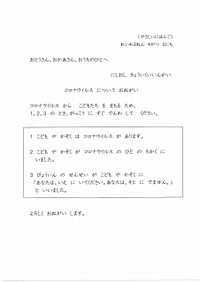 （やさしいにほんご）
れいわ２ねん ４がつ ２にち
おとうさん、おかあさん、おうちのひとへ
にしおし きょういくいいんかい
コロナウイルス について おねがい
コロナウイルス から こどもたち を まもる ため、
1、2、3 の とき、がっこう に すぐ でんわ して ください。
1 こども や かぞく は コロナウイルス が あります。
2 こども や かぞく が コロナウイルス の ひと の ちかく に
いました。
3 びょういん の せんせい が こども や かぞく に
「あなたは、いえ に いてください。あなたは、そと に でません。」
と いいました。
よろしく おねがい します。